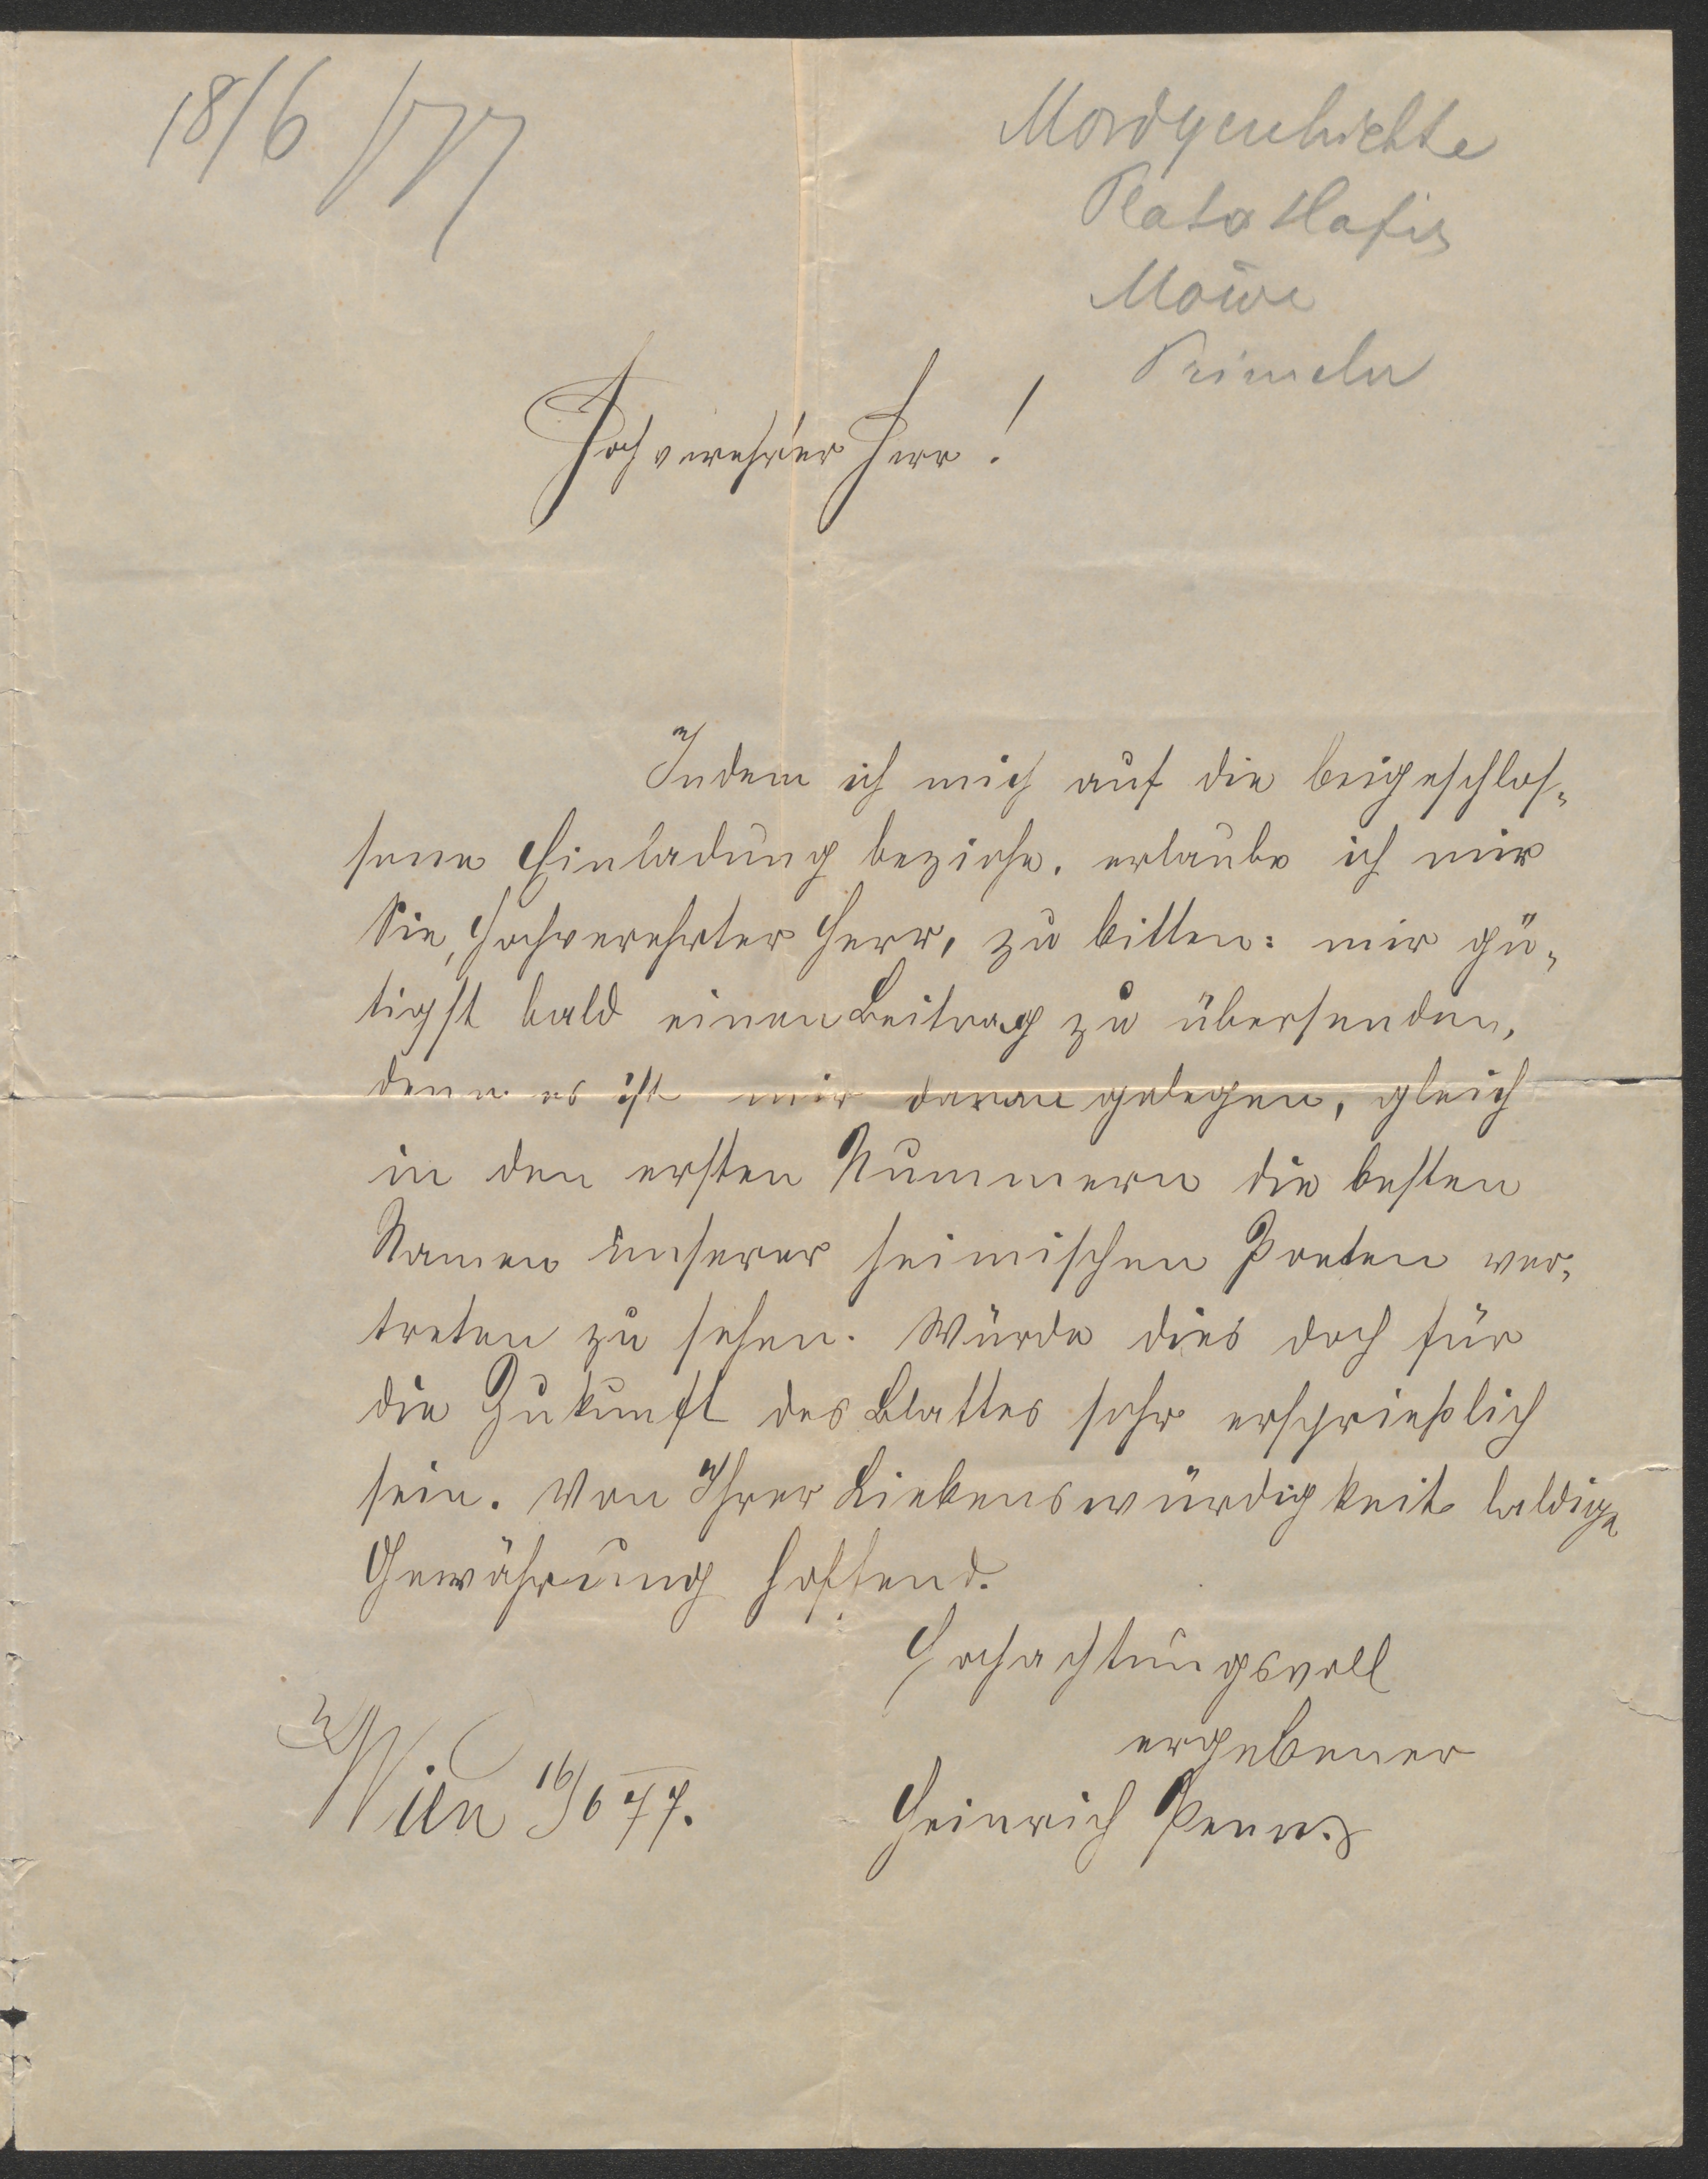 18/6 77
Mordgeschichte
Plato Hafis
Möwe
Primeln
Hochverehrter Herr!
Indem ich mich auf die beigeschlos-
sene Einladung beziehe, erlaube ich mir
Sie, hochverehrter Herr, zu bitten: mir gü-
tigst bald einen Beitrag zu übersenden,
denn es ist mir daran gelegen, gleich
in den ersten Nummern die besten
Namen unserer heimischen Poeten ver-
treten zu sehen. Würde dies doch für
die Zukunft des Blattes sehr ersprießlich
sein. Von Ihrer Liebenswürdigkeit baldige
Gewährung hoffend.
Hochachtungsvoll
ergebener
Wien 16/6 77.
Heinrich Penn